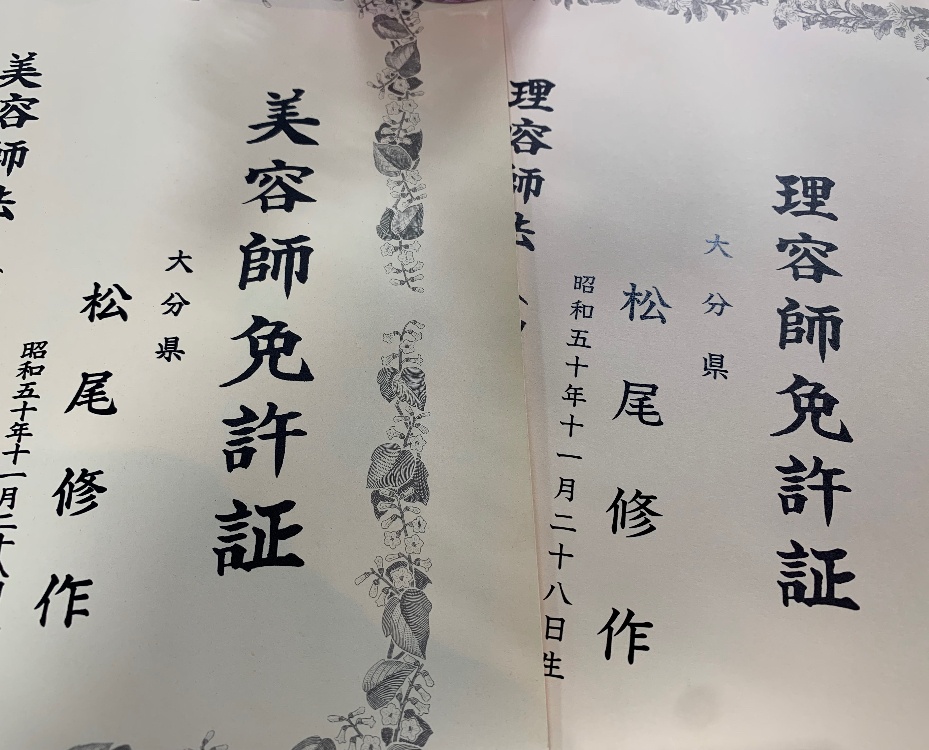 理容師免許証
大分県
松尾修作
昭和五十年十一月二十八日生
理容師法
美容師免許証
大分県
松尾修作
昭和五十年十一月二十八日
美容師法